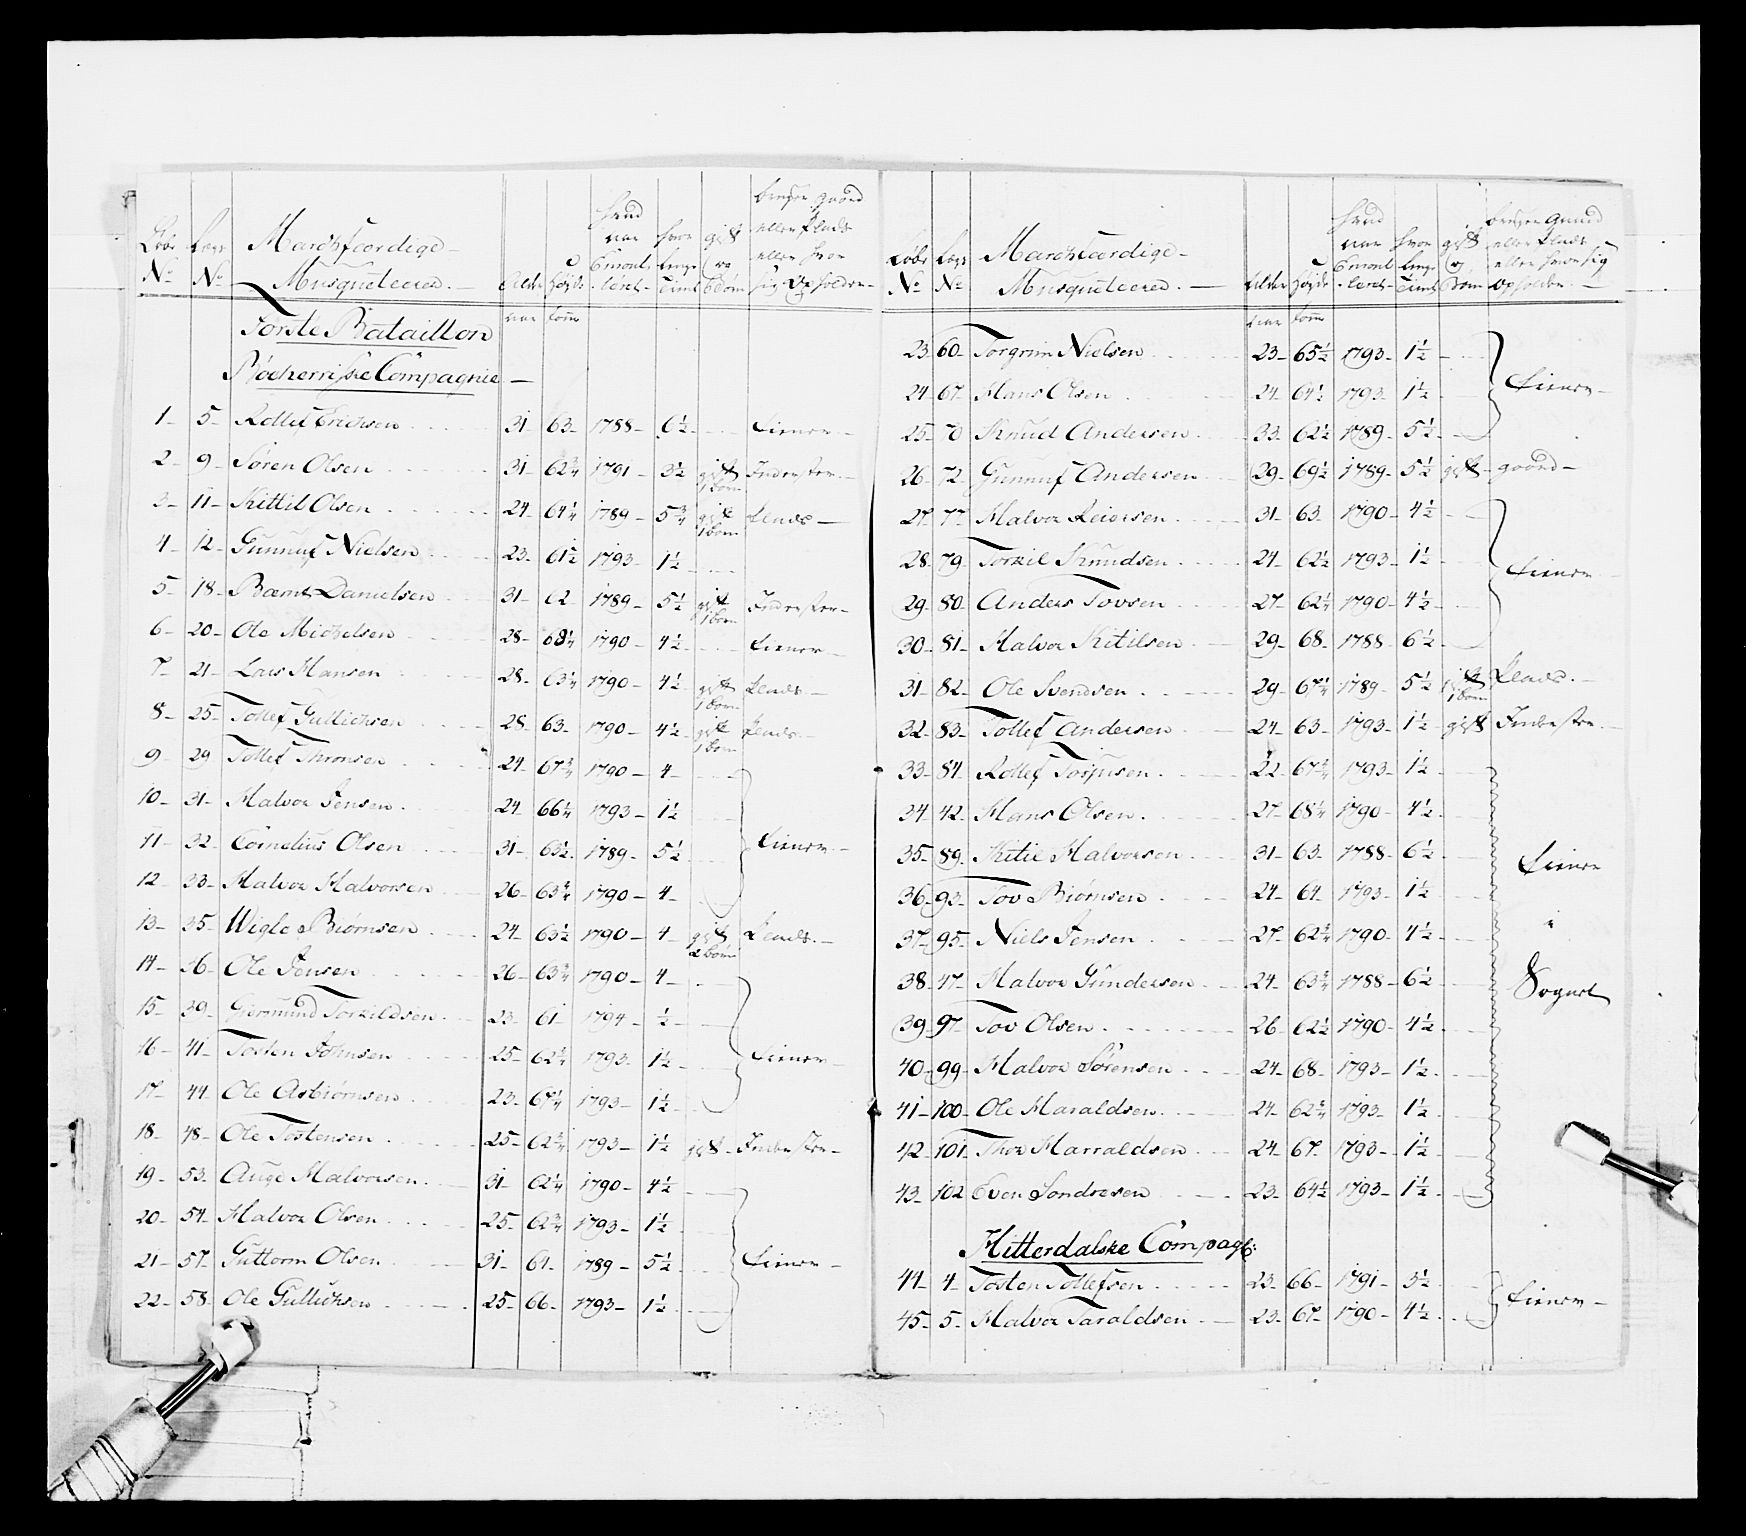 Løbe No Lægs No Marchfærdige Musqueteerer. Alder Høyde hvad aar Enroulleret hvor længe tient gift og børn bruger gaard eller Plads eller hvor sig Opholder
aar tom̄
Første Bataillon
Bøeherriske Compagnie
1 5 Rollef Erichsen 31 63 1788 6½ tiener
2 9 Søren Olsen 31 62¾ 1791 3½ gift 1 børn Inderster
3 11 Kittil Olsen 24 64¼ 1789 5¾ gift 1 børn Plads
4 12 Gunnuf Nielsen 23 61½ 1793 1½
5 18 Bærnt Danielsen 31 62 1789 5½ gift 1 børn Inderster
6 20 Ole Michelsen 28 68¼ 1790 4½ tiener
7 21 Lars Hansen 28 63¼ 1790 4½ gift 1 børn Plads
8 25 Tollef Gullichsen 28 63 1790 4½ gift 1 børn Plads
9 29 Tollef Thronsen 24 67¾ 1790 4
10 31 Halvor Jensen 24 66¼ 1793 1½
11 32 Cornelius Olsen 31 63½ 1789 5½ tiener
12 33 Halvor Halvorsen 26 63¾ 1790 4
13 35 Wigle Biørnsen 24 63½ 1790 4 gift 2 børn Plads
14 36 Ole Jensen 26 63¾ 1790 4
15 39 Giermund Torkildsen 23 61 1794 ½
16 41 Tosten Johnsen 25 62¼ 1793 1½ tiener
17 44 Ole Asbiørnsen 23 67¼ 1793 1½
18 48 Ole Tostensen 25 62¾ 1793 1½ gift Inderster
19 53 Auge Halvorsen 31 62¼ 1790 4½
20 54 Halvor Olsen 25 62¾ 1793 1½
21 57 Guttorm Olsen 31 61 1789 5½ tiener
22 58 Ole Gullichsen 25 66 1793 1½
Løbe No Lægs No Marchfærdige Musqueteerer. Alder Høyde hvad aar Enroulleret hvor længe tient gift og Børn bruger gaard eller Plads eller hvor sig Opholder
aar tom̄
23 60 Torgrim Nielsen 23 65½ 1793 1½
24 67 Hans Olsen 24 64½ 1793 1½ tiener
25 70 Knud Andersen 33 62½ 1789 5½
26 72 Gunnuf Andersen 29 69½ 1789 5½ gift gaard
27 77 Halvor Reiersen 31 63 1790 4½
28 79 Torkil Knudsen 24 62½ 1793 1½ tiener
29 80 Anders Tovsen 27 62¼ 1790 4½
30 81 Halvor Kitilsen 29 68 1788 6½
31 82 Ole Svendsen 29 67¼ 1789 5½ gift 1 børn Plads
32 83 Tollef Andersen 24 63 1793 1½ gift Inderster
33 84 Rollef Torjusen 22 67¾ 1793 1½
34 42 Hans Olsen 27 68¼ 1790 4½
35 89 Kitil Halvorsen 31 63 1788 6½ tiener
36 93 Tov Biørnsen 24 64 1793 1½
37 95 Niels Jensen 27 62¾ 1790 4½ i
38 47 Halvor Gundersen 24 63¾ 1788 6½ Sognet
39 97 Tov Olsen 26 62½ 1790 4½
40 99 Halvor Sørensen 24 68 1793 1½
41 100 Ole Haraldsen 24 62¾ 1793 1½
42 101 Thor Harraldsen 24 67 1793 1½
43 102 Even Sondresen 23 64½ 1793 1½
Hitterdalske Compag:
44 4 Tosten Tollefsen 23 66 1791 3½
45 5 Halvor Taraldsen 23 67 1790 4½ tiener